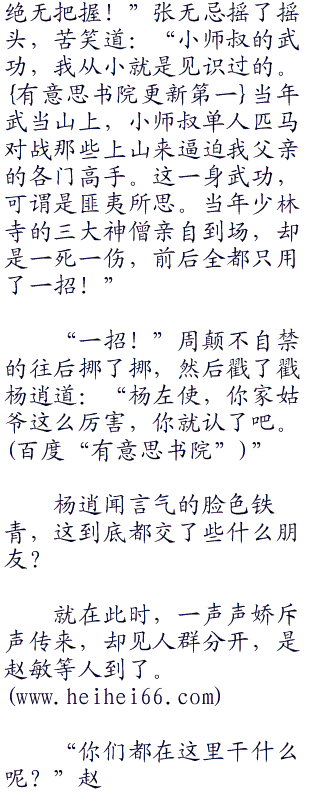 绝无把握！”张无忌摇了摇
头，苦笑道：“小师叔的武
功，我从小就是见识过的。
{有意思书院更新第一}当年
武当山上，小师叔单人匹马
对战那些上山来逼迫我父亲
的各门高手。这一身武功，
可谓是匪夷所思。当年少林
寺的三大神僧亲自到场，却
是一死一伤，前后全都只用
了一招！”
“一招！”周颠不自禁
的往后挪了挪，然后戳了戳
杨逍道：“杨左使，你家姑
爷这么厉害，你就认了吧。
(百度“有意思书院”)”
杨逍闻言气的脸色铁
青，这到底都交了些什么朋
友？
就在此时，一声声娇斥
声传来，却见人群分开，是
赵敏等人到了。
(www.heihei66.com)
“你们都在这里干什么
呢？”赵